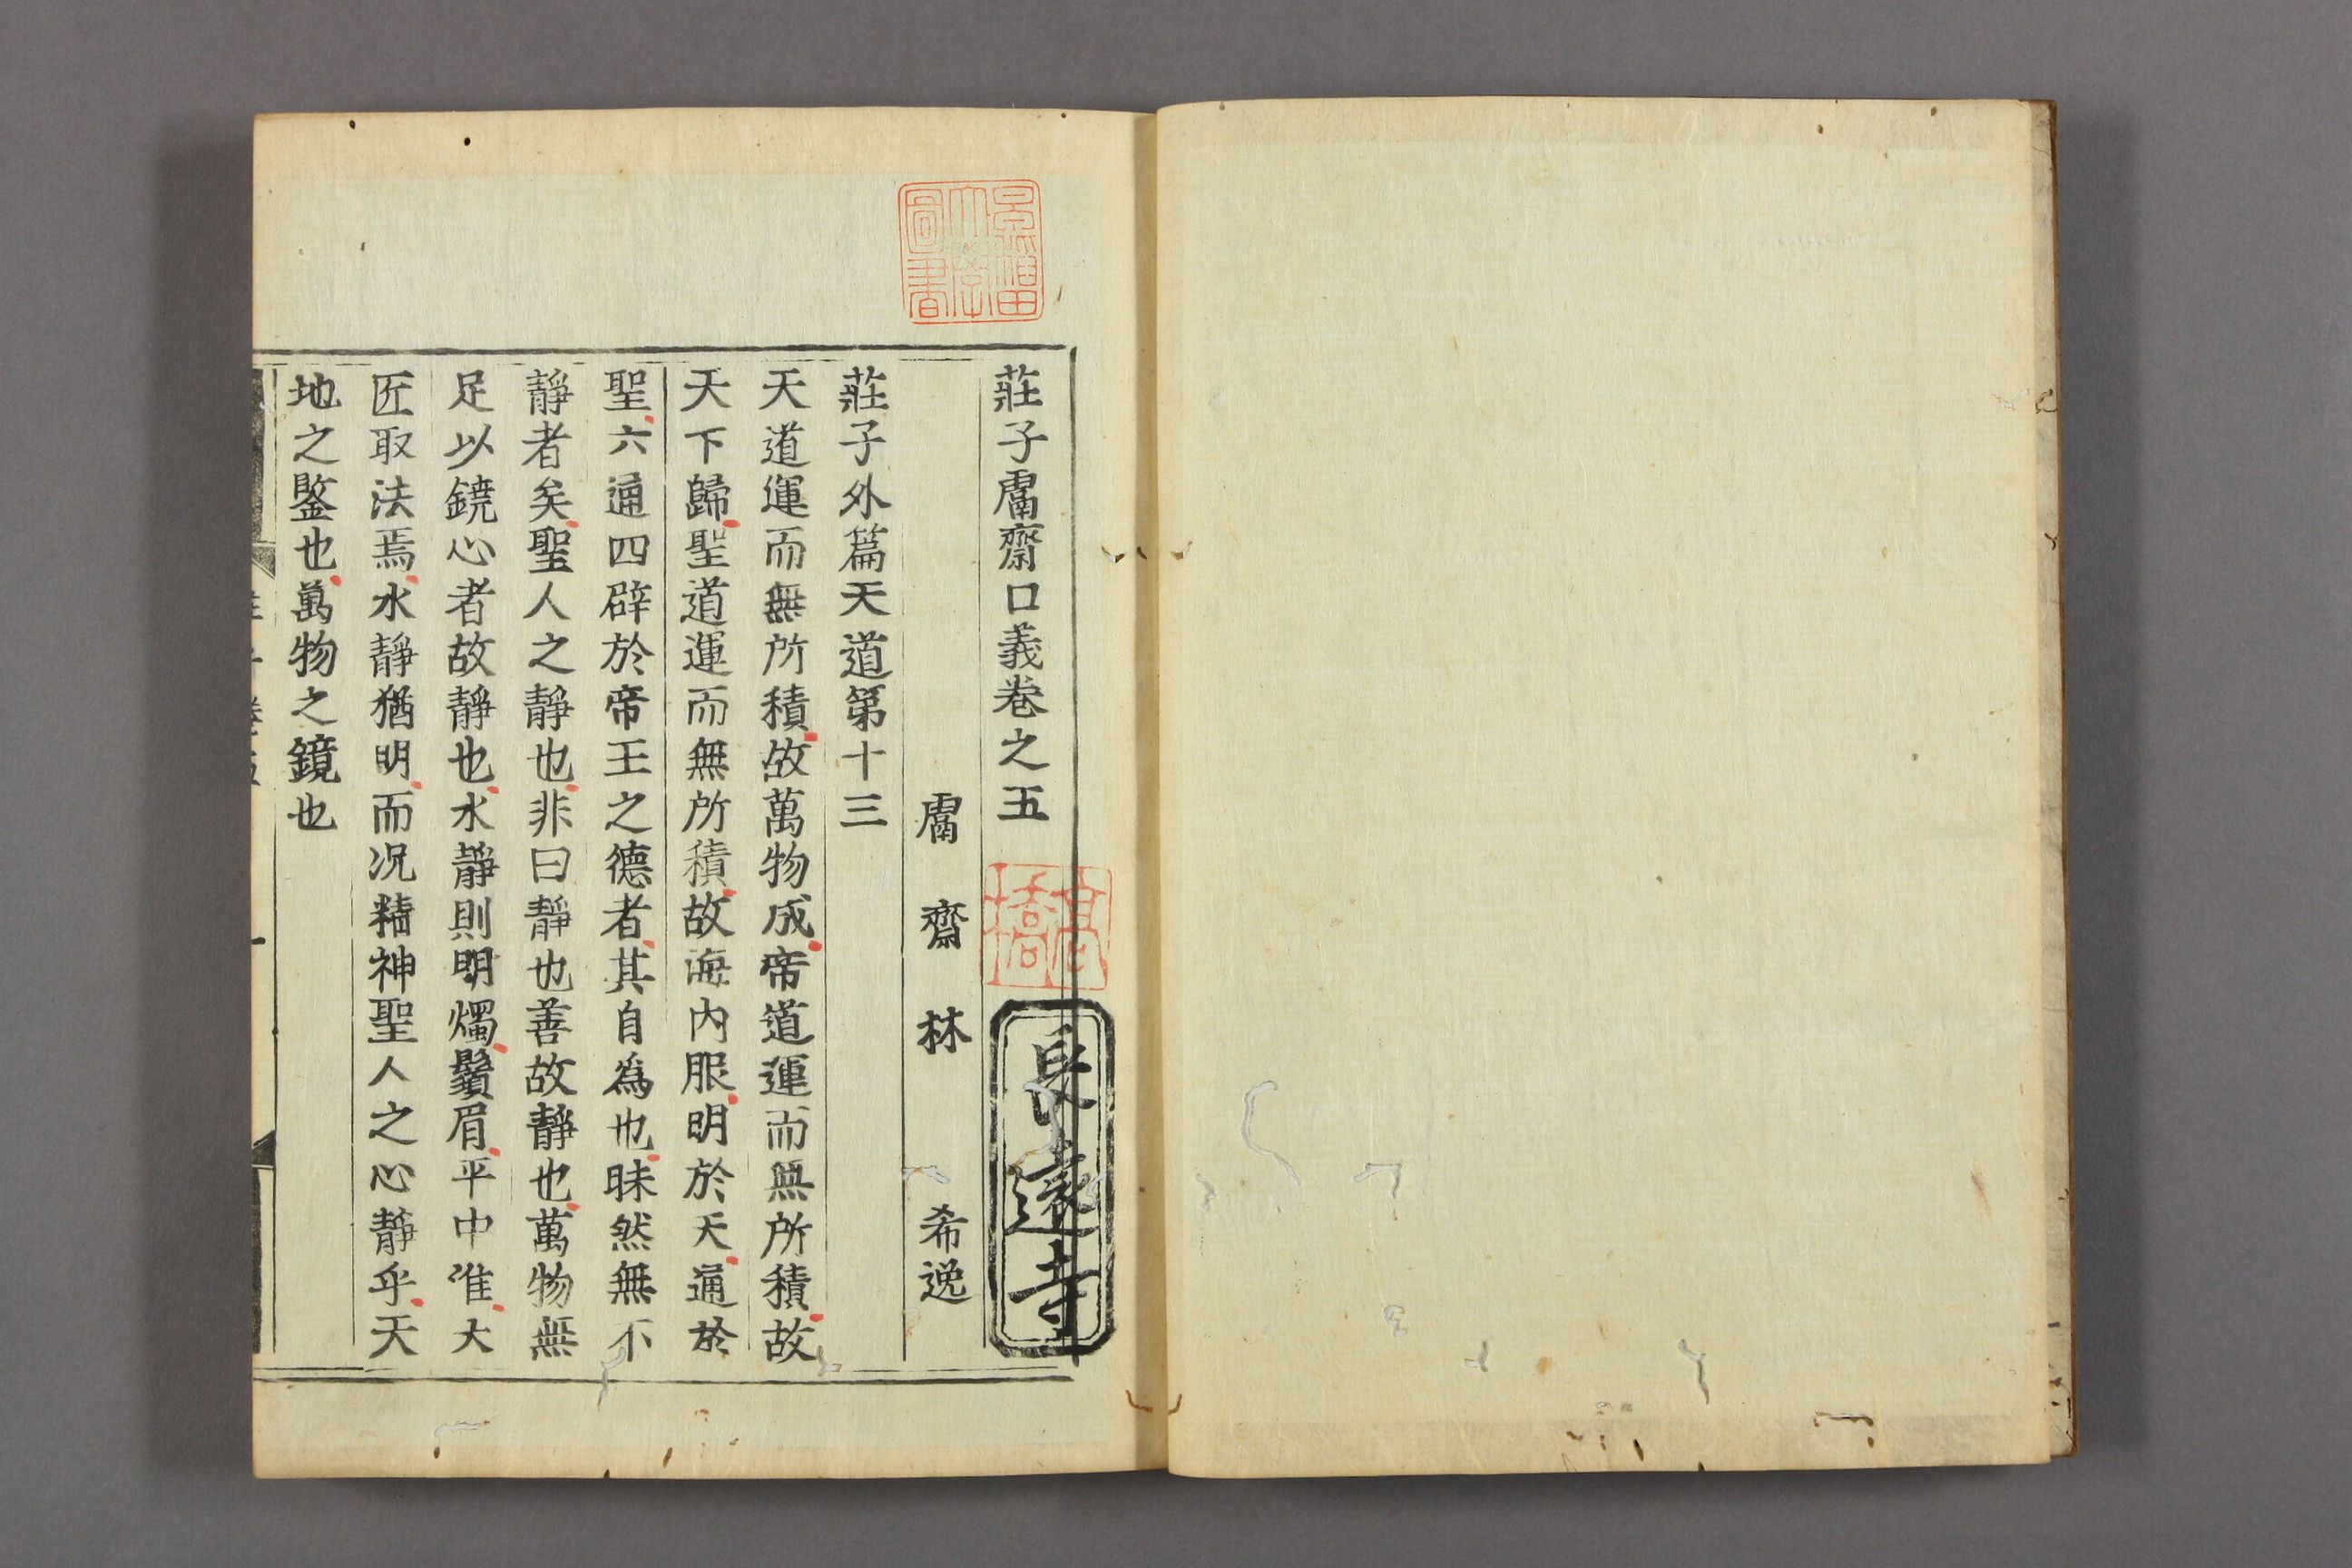 莊子鬳齋口義卷之五
鬳齋林希逸
莊子外篇天道第十三
天道運而無所積故萬物成帝道運而無所積故
天下歸聖道運而無所積故海内服明於天通於
聖六通四辟於帝王之德者其自爲也昧然無不
靜者矣聖人之靜也非曰靜也善故靜也萬物無
足以鐃心者故靜也水靜則明燭鬚眉平中准大
匠取法焉水靜猶明而况精神聖人之心靜乎天
地之鑒也萬物之鏡也
高橋
長遠寺